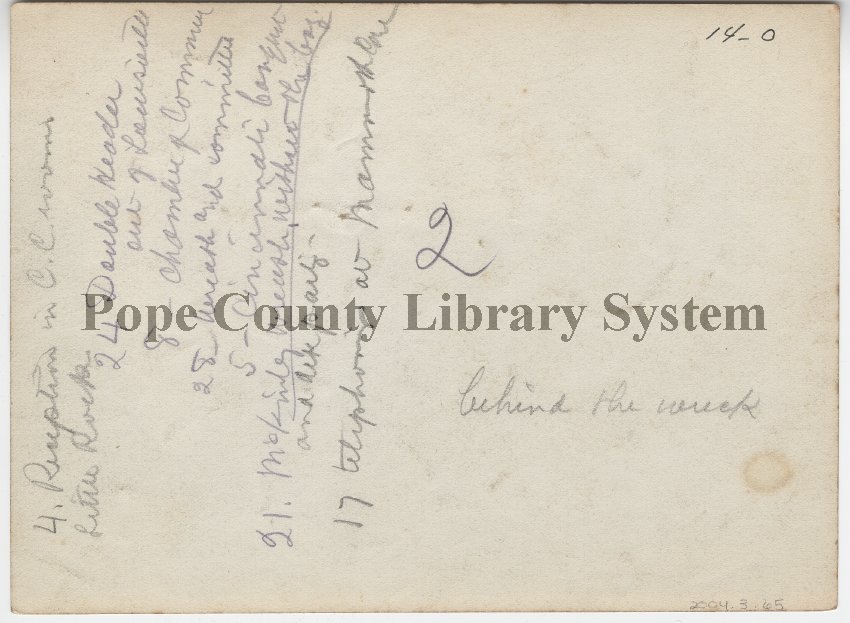 14-0
4. Reception in C.C. rooms
Little Rock
24 Double header
out of Louisville
8 - Chamber of Commerce
28 - wreath and committee
5 - Cincinnati banquet
21. McKinley wreath, withers the boy
and dele party -
17 telephoning at Mammoth Cave
2
Pope County Library System
behind the wreck
2004.3.65